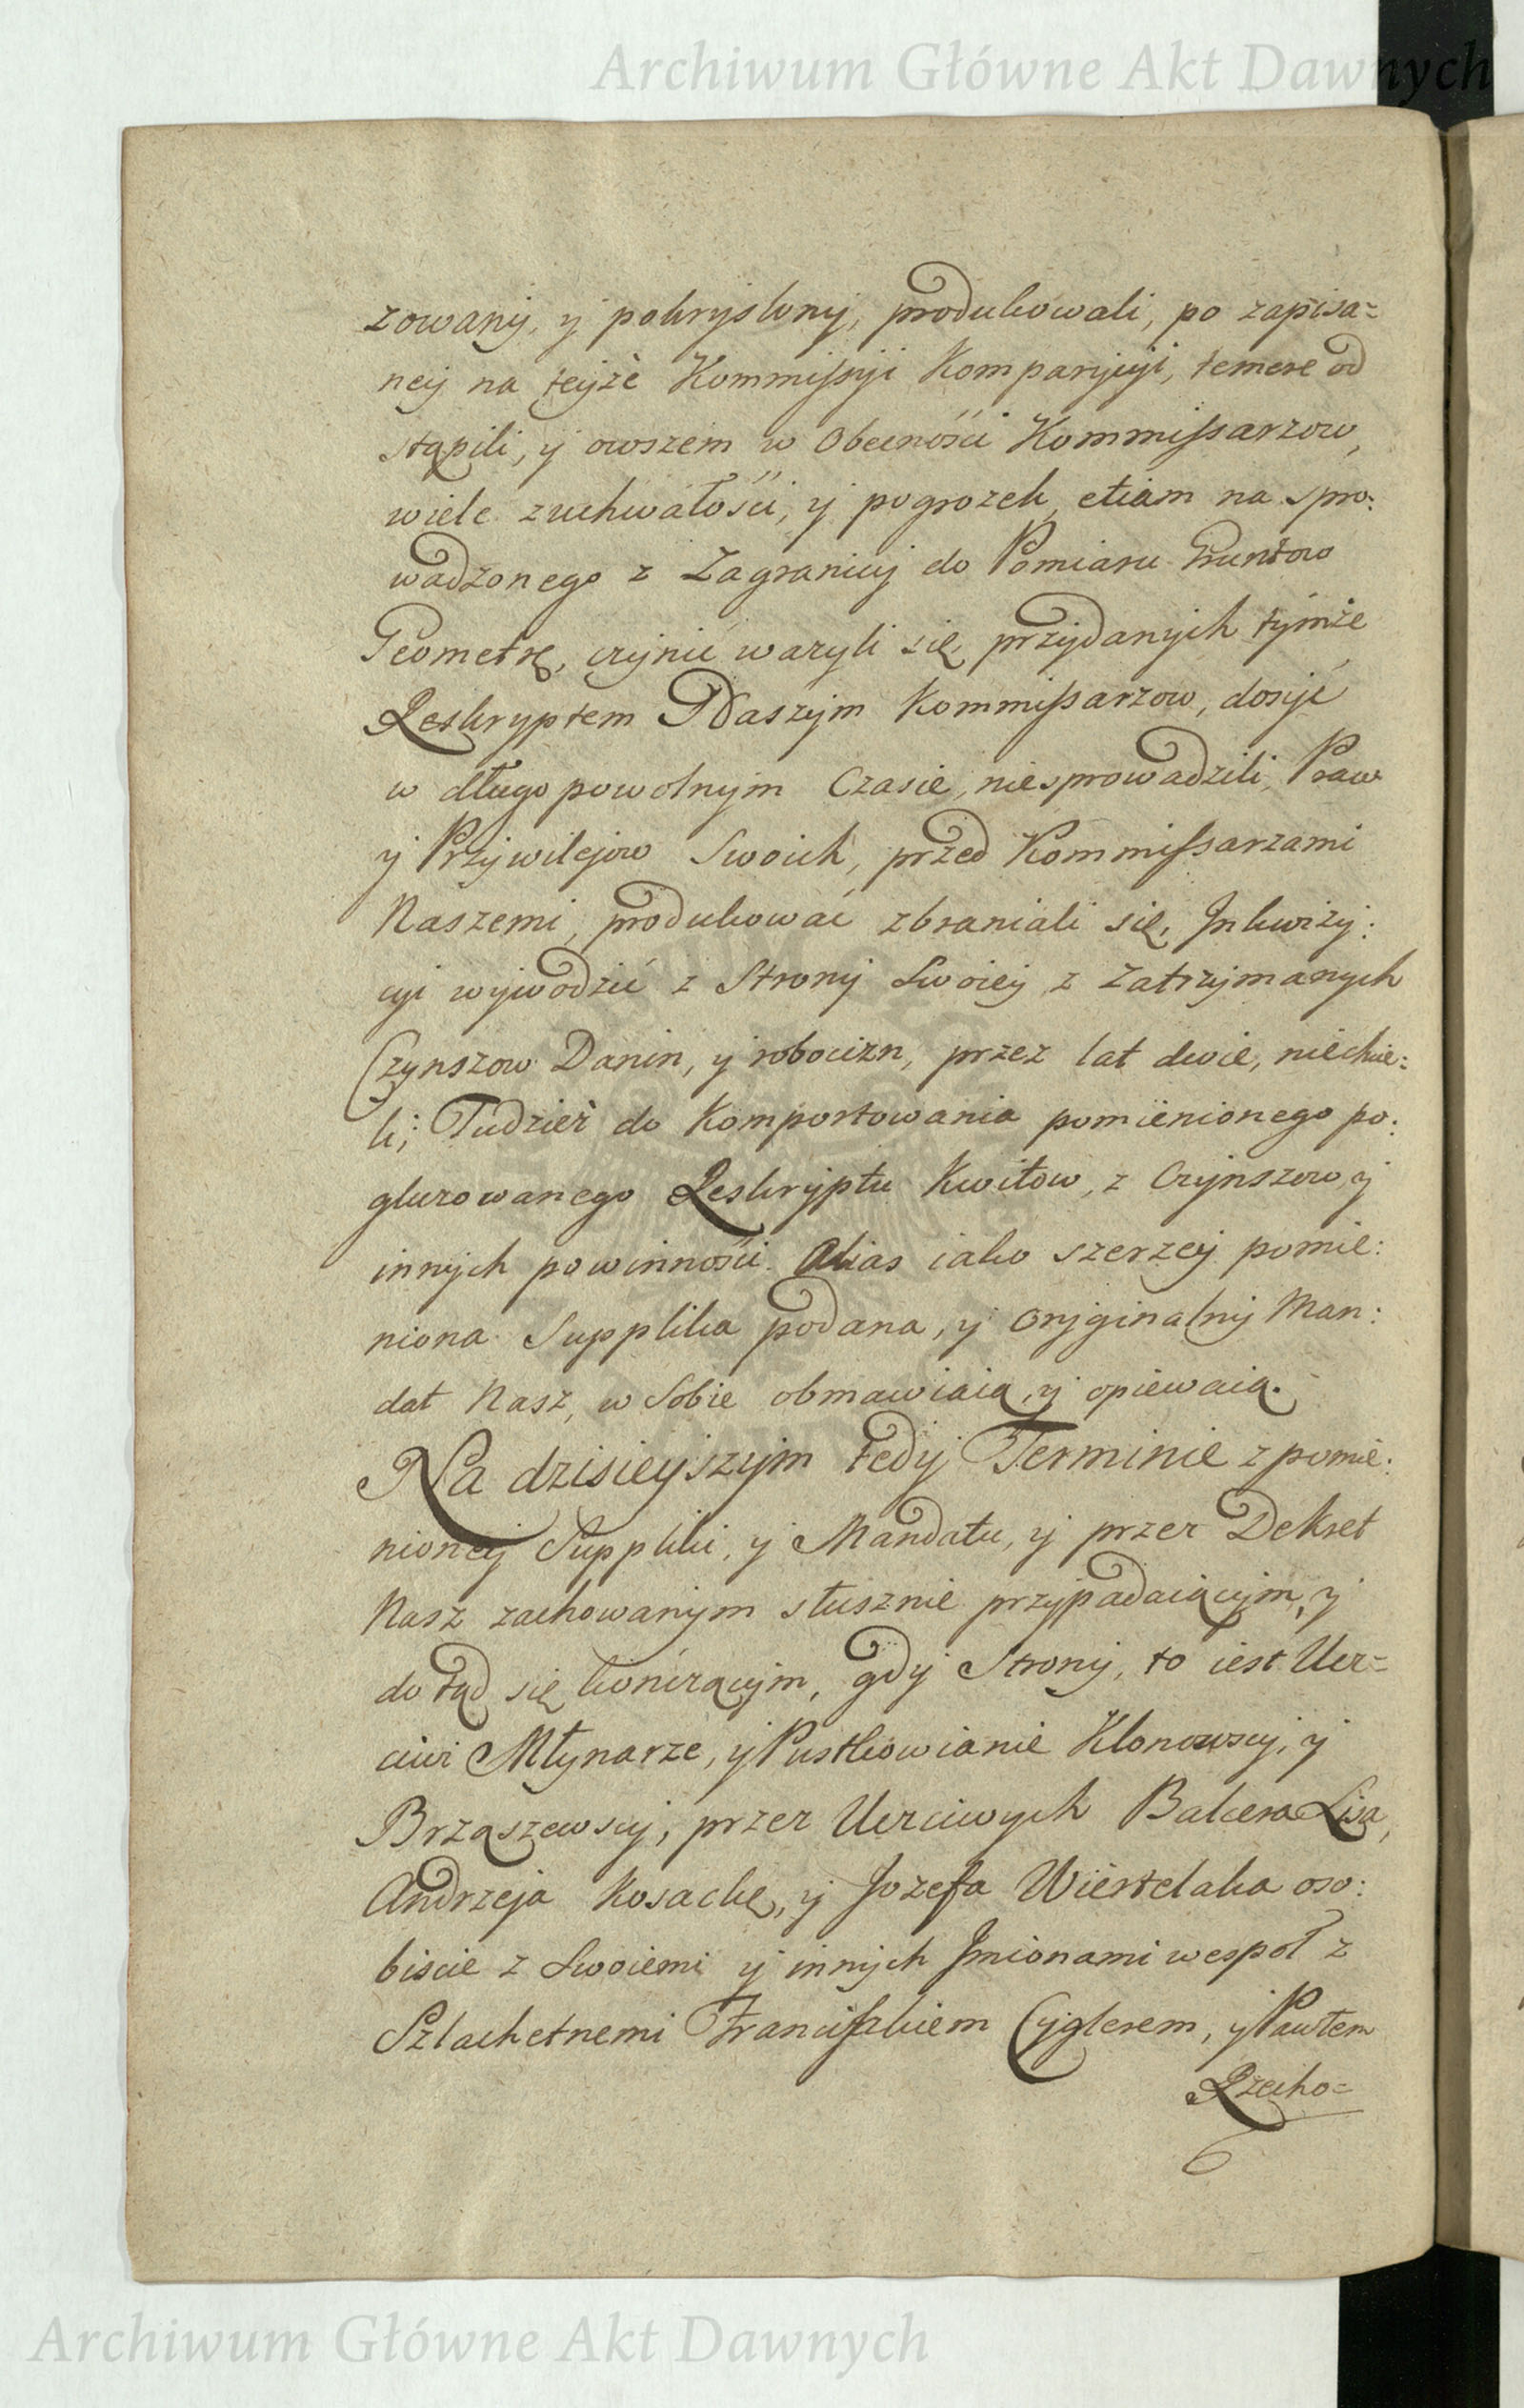 Archiwum Główne Akt Dawnych
zowany, y pokryslony, produkowali, po zapisa=
ney na teyże Kommissyi Komparycyi, temere od
stąpili, y owszem w Obecności Kommissarzow,
wiele zuchwałości, y pogrozek etiam na spro:
wadzonego z Zagranicy do Pomiaru Gruntow
Geometrę, czynić wazyli się, przydanych tymże
Reskryptem Naszym Kommissarzow, dosyć
w długo powolnym Czasie, niesprowadzili, Praw
y Przywilejow Swoich, przed Kommissarzami
Naszemi, produkować zbraniali się, Inkwizy:
cyi wywodzić z Strony Swoiey z Zatrzymanych
Czynszow Danin, y robocizn, przez lat dwie, niechcie:
li; Tudzież do Komportowania pomienionego po:
gluzowanego Reskryptu Kwitow, z Czynszow y
innych powinności. Alias iako szerzey pomie:
niona Supplika podana, y Oryginalny Man:
dat Nasz, w Sobie obmawiaią, y opiewaią.
Na dzisieyszym tedy Terminie z pomie:
nioney Suppliki, y Mandatu, y przez Dekret
Nasz zachowanym słusznie przypadaiącym, y
do tąd się kończącym, gdy Strony, to iest Ucz=
ciwi Młynarze, y Pustkowianie Klonowscy, y
Brząszewscy, przez Uczciwych Balcera Lisa,
Andrzeja Kosackę, y Jozefa Wiertelaka oso:
biscie z Swoiemi y innych Imionami wespoł z
Szlachetnemi Franciszkiem Cyglerem, y Pawłem
Rzecho=
Archiwum Główne Akt Dawnych